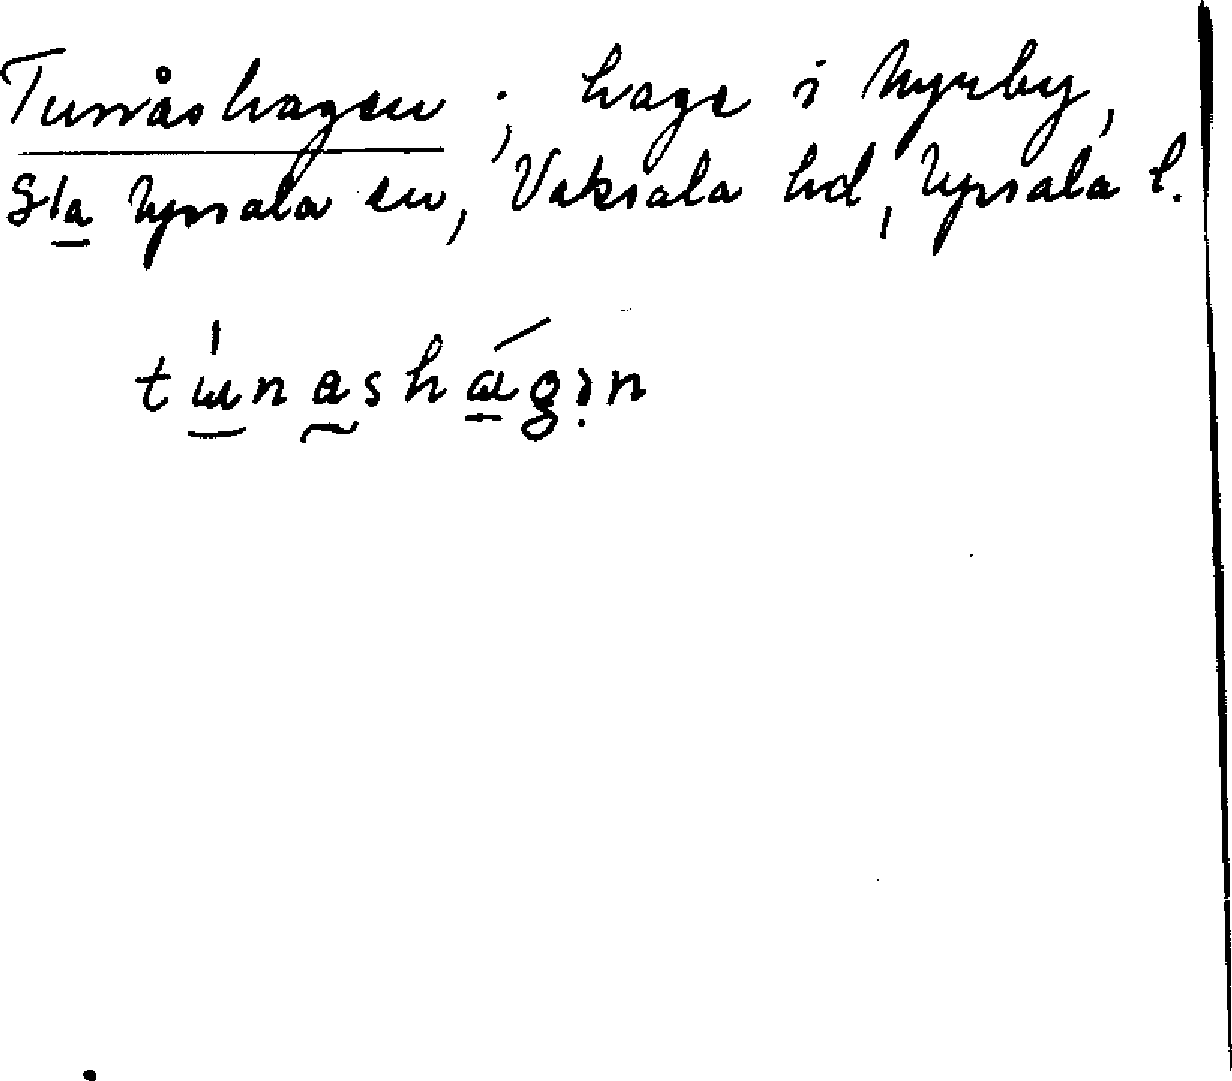 Tunåshagen ; hage i Nyrby,
Gla Upsala sn, Vaksala hd, Upsala l.
tɯ́nashágən